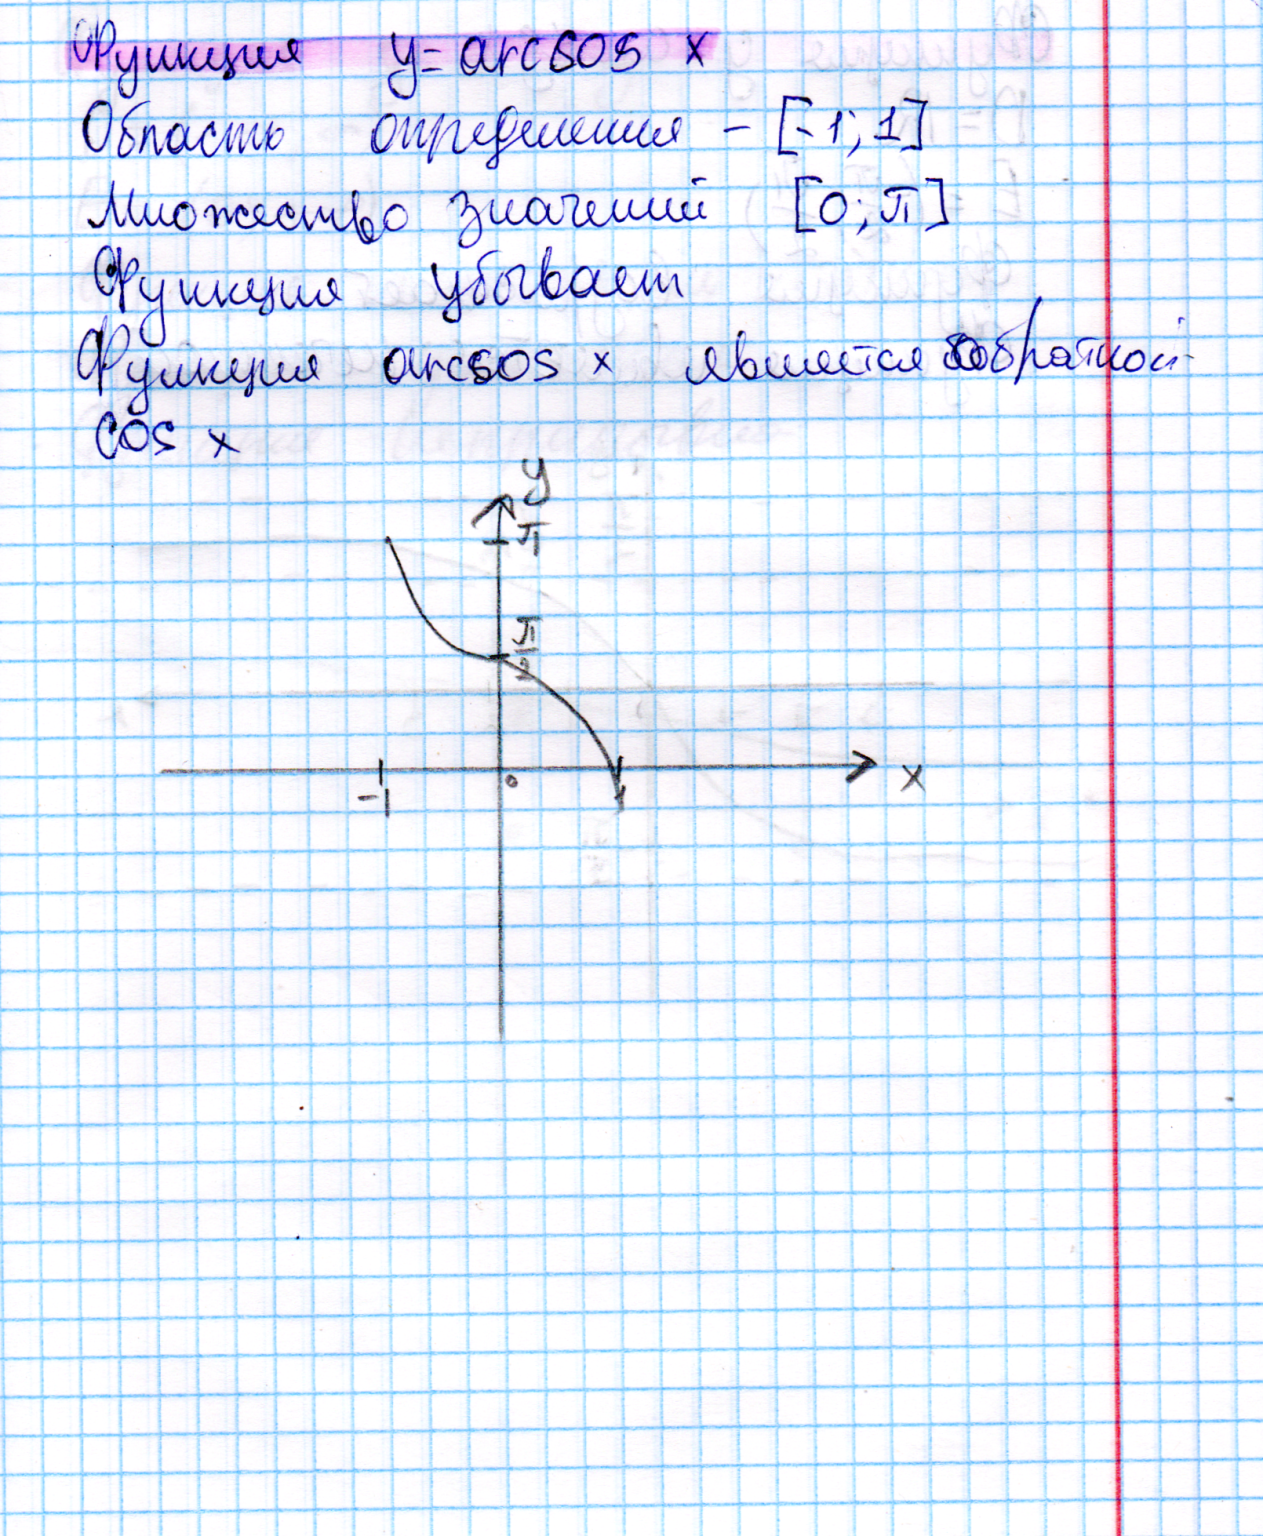 Функция y = arcsos x
Область определения – [-1; 1]
Множество значений [0; π]
Функция убывает
Функция arcsos x является обратной
cos x
y
π
π
2
-1
0
1
x